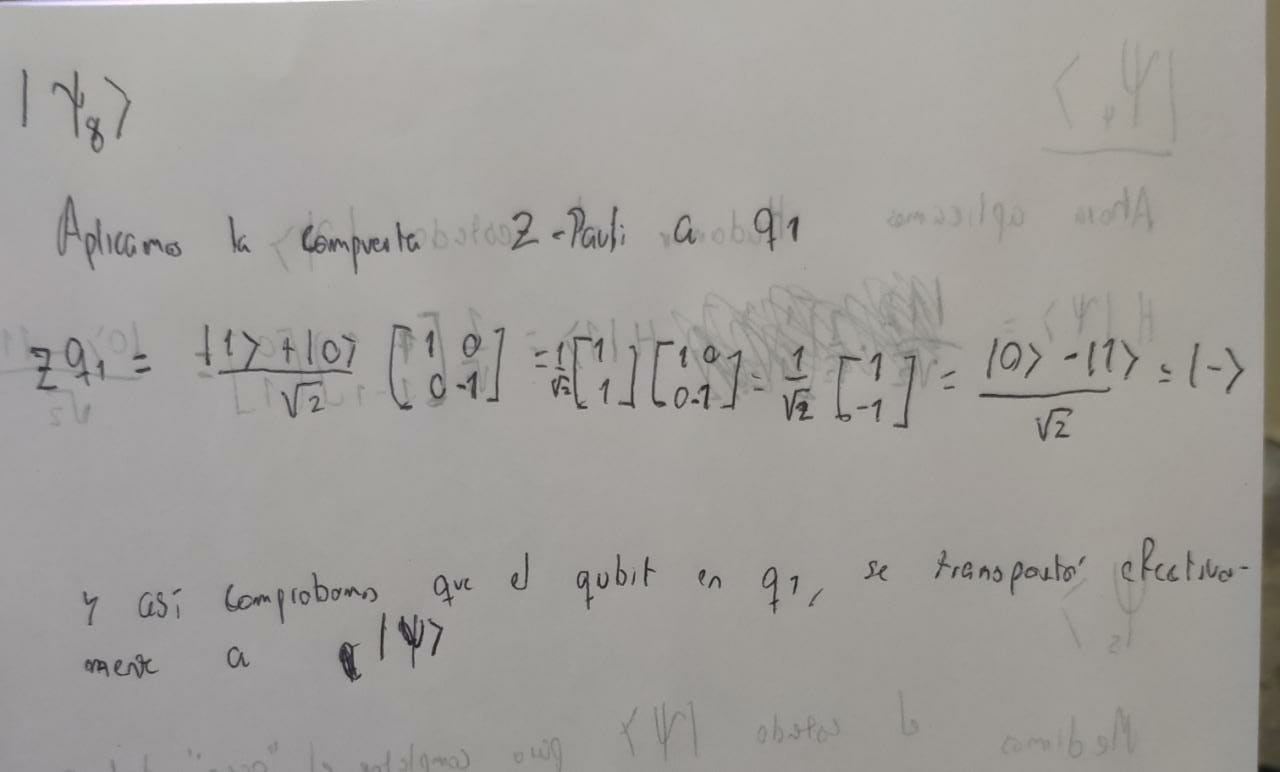 |ψ₈⟩
Aplicamos la compuerta Z-Pauli a q₁
Zq₁ = |1⟩+|0⟩/√2 [1 0; 0 -1] = 1/√2 [1; 1] [1 0; 0 -1] = 1/√2 [1; -1] = |0⟩-|1⟩/√2 = |-⟩
y así comprobamos que el qubit en q₁, se transportó efectiva-
mente a |ψ⟩